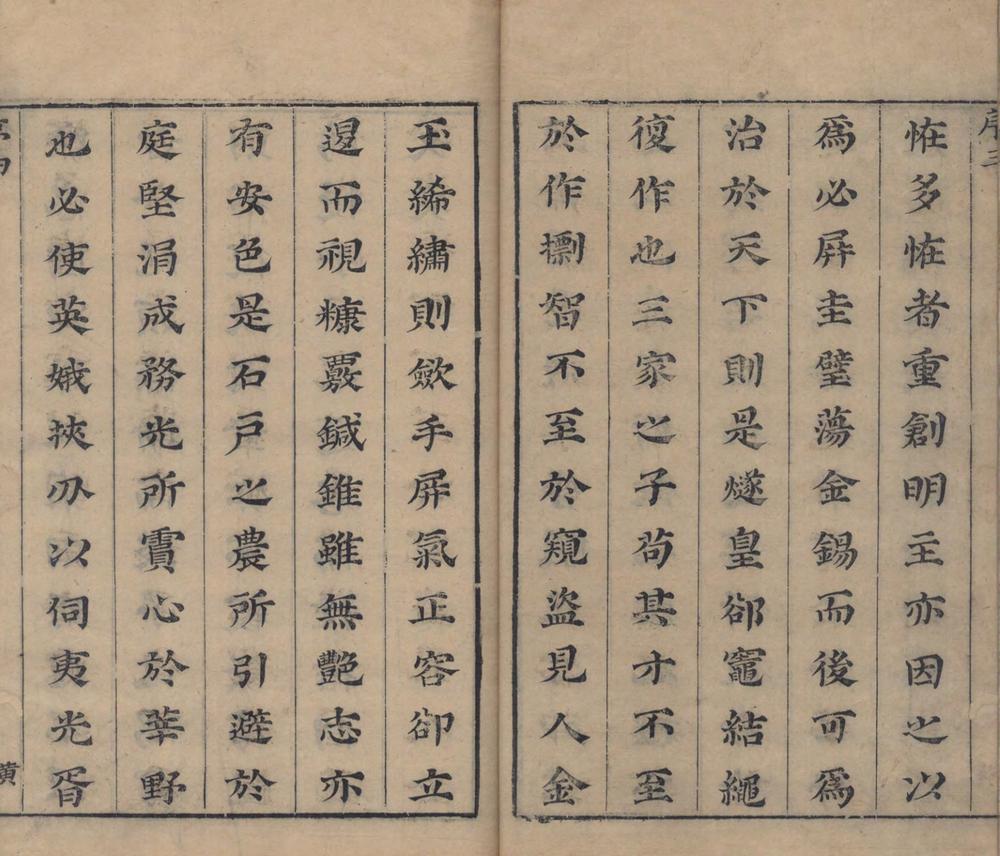 序三
恠多恠者重創明主亦因之以
爲必屏圭璧蕩金錫而後可爲
治於天下則是燧皇郤竈結繩
復作也三家之子苟其才不至
於作摽智不至於窺盜見人金
玉絺繡則斂手屏氣正容卻立
逞而視糠覈鍼錐雖無艷志亦
有安色是石戸之農所引避於
庭堅涓成務光所賣心於莘野
也必使英娥挾刅以伺夷光胥
序四
黃